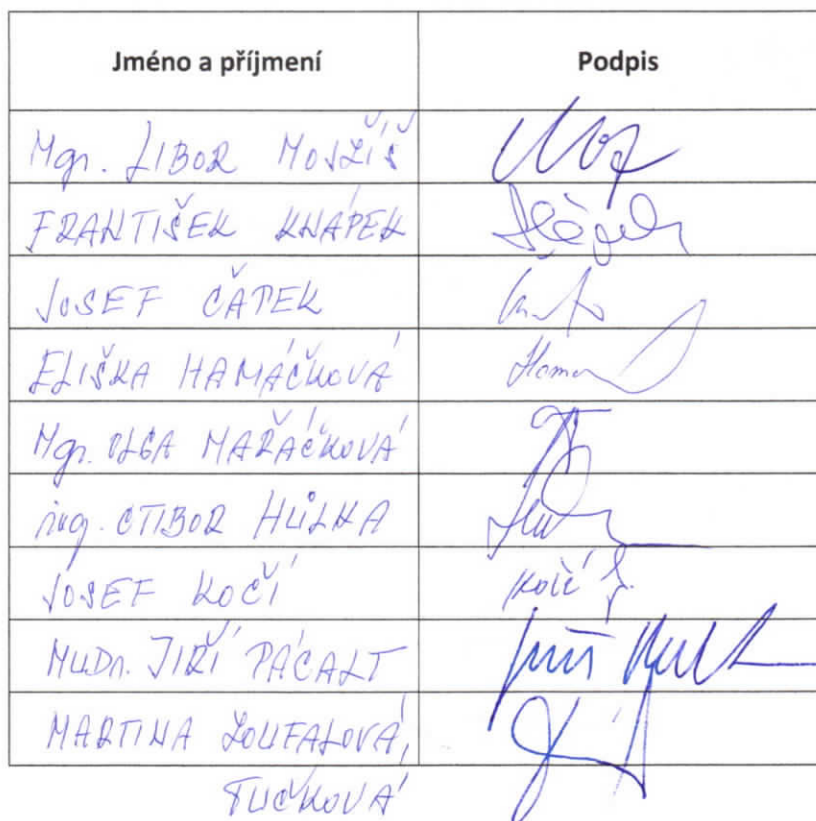 Jméno a příjmení Podpis
Mgr. LIBOR MOJŽÍŠ
FRANTIŠEK KNÁPEK
JOSEF ČÁPEK
ELIŠKA HAMÁČKOVÁ
Mgr. OLGA MAŘÁČKOVÁ
ing. CTIBOR HŮLKA
JOSEF KOČÍ Kočí
MUDr. JIŘÍ PÁCALT
MARTINA ZOUFALOVÁ,
TUČKOVÁ